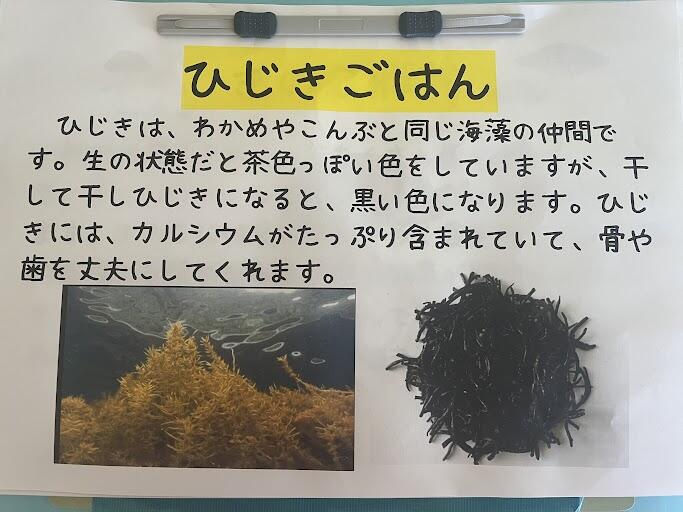 ひじきごはん
ひじきは、わかめやこんぶと同じ海藻の仲間で
す。生の状態だと茶色っぽい色をしていますが、干
して干しひじきになると、黒い色になります。ひじ
きには、カルシウムがたっぷり含まれていて、骨や
歯を丈夫にしてくれます。